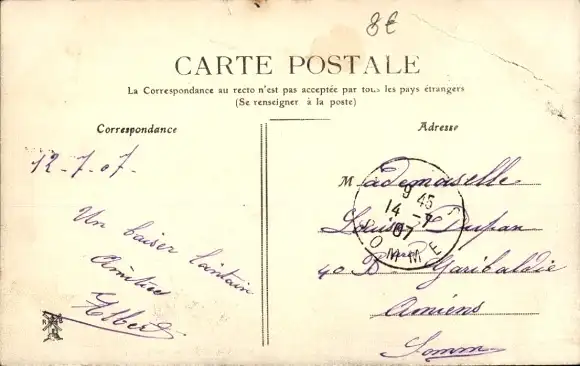 8€
CARTE POSTALE
La Correspondance au recto n'est pas acceptée par tous les pays étrangers
(Se renseigner à la poste)
Correspondance
Adresse
12-7-07.
Un baiser lointain
Amitiés
Albert
Mademoiselle
Louise Dupan
40 Bard Garibaldie
Amiens
Somme
9 45
14 - 7
07
SOMME